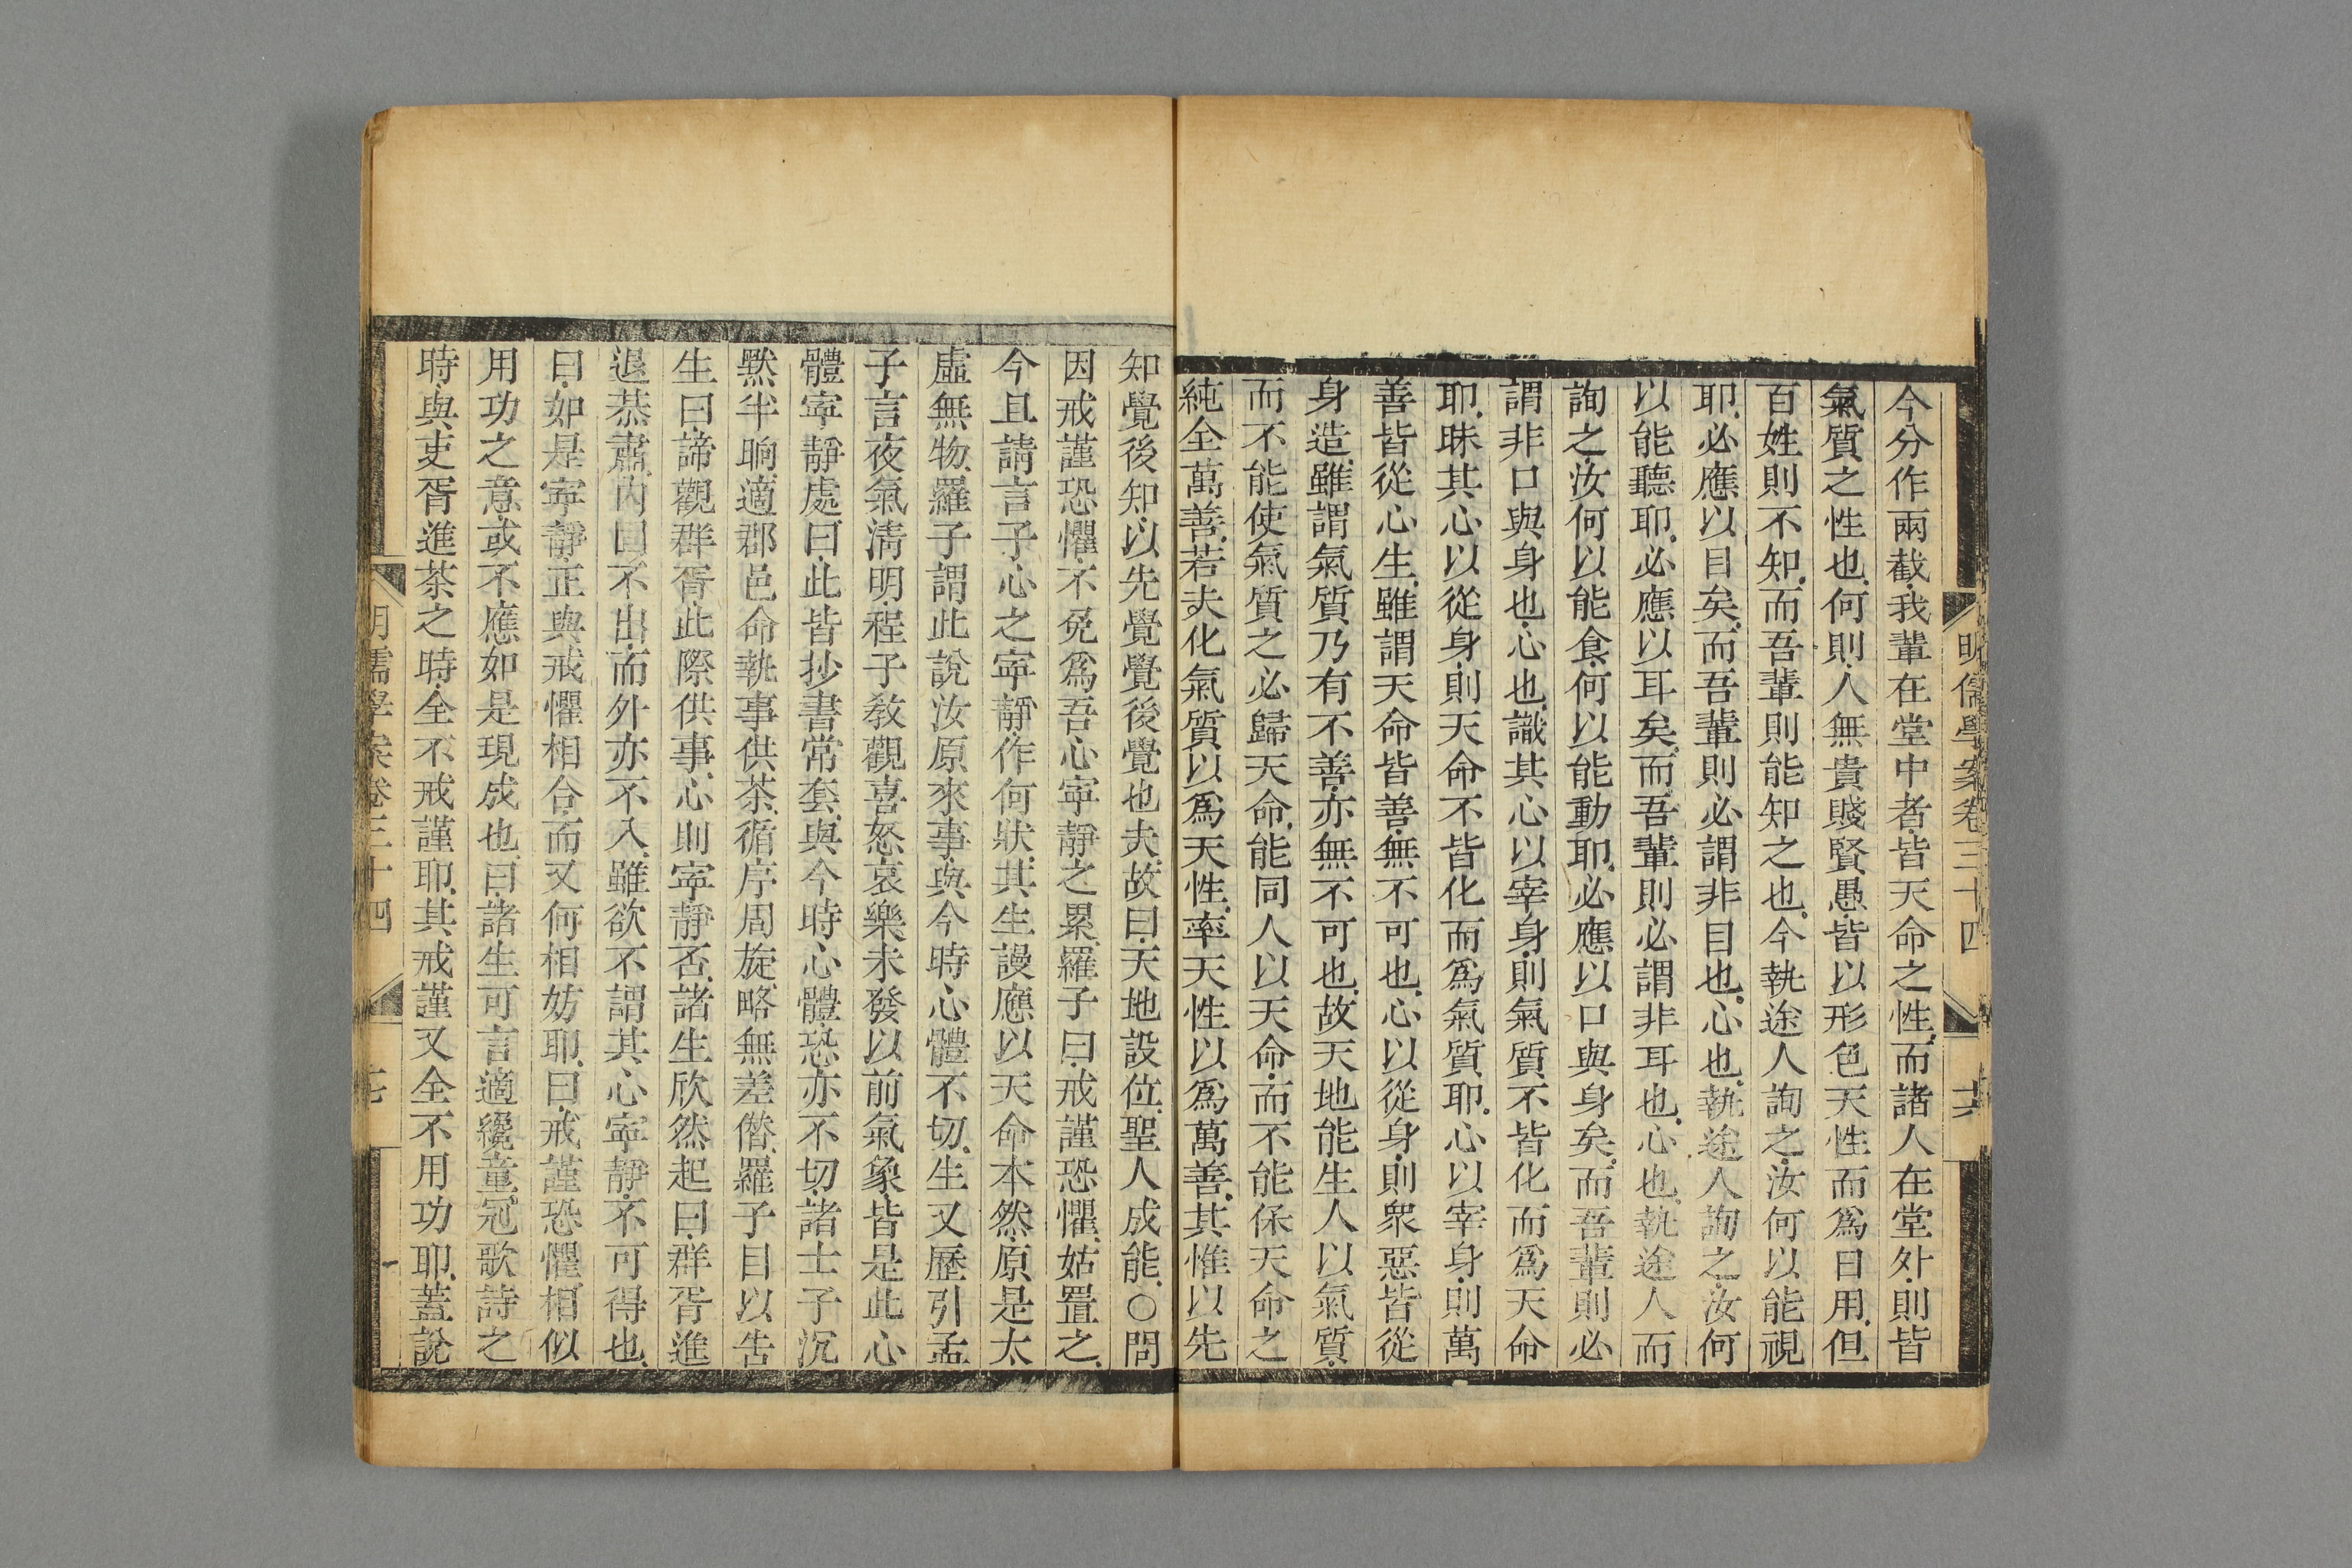 明儒學案卷三十四
六
今分作兩截我輩在堂中者皆天命之性而諸人在堂外則皆
氣質之性也何則人無貴賤賢愚皆以形色天性而爲日用但
百姓則不知而吾輩則能知之也今執途人詢之汝何以能視
耶必應以目矣而吾輩則必謂非目也心也執途人詢之汝何
以能聽耶必應以耳矣而吾輩則必謂非耳也心也執途人而
詢之汝何以能食何以能動耶必應以口與身矣而吾輩則必
謂非口與身也心也識其心以宰身則氣質不皆化而爲天命
耶昧其心以從身則天命不皆化而爲氣質耶心以宰身則萬
善皆從心生雖謂天命皆善無不可也心以從身則衆惡皆從
身造雖謂氣質乃有不善亦無不可也故天地能生人以氣質
而不能使氣質之必歸天命能同人以天命而不能保天命之
純全萬善若夫化氣質以爲天性率天性以爲萬善其惟以先
知覺後知以先覺覺後覺也夫故曰天地設位聖人成能○問
因戒謹恐懼不免爲吾心寧靜之累羅子曰戒謹恐懼姑置之
今且請言子心之寧靜作何狀其生謾應以天命本然原是太
虛無物羅子謂此說汝原來事與今時心體不切生又歷引孟
子言夜氣淸明程子敎觀喜怒哀樂未發以前氣象皆是此心
體寧靜處曰此皆抄書常套與今時心體恐亦不切諸士子沉
默半晌適郡邑命執事供茶循序周旋略無差僭羅子目以告
生曰諦觀群胥此際供事心則寧靜否諸生欣然起曰群胥進
退恭肅內固不出而外亦不入雖欲不謂其心寧靜不可得也
曰如是寧靜正與戒懼相合而又何相妨耶曰戒謹恐懼相似
用功之意或不應如是現成也曰諸生可言適纔童冠歌詩之
時與吏胥進茶之時全不戒謹耶其戒謹又全不用功耶蓋說
明儒學案卷三十四